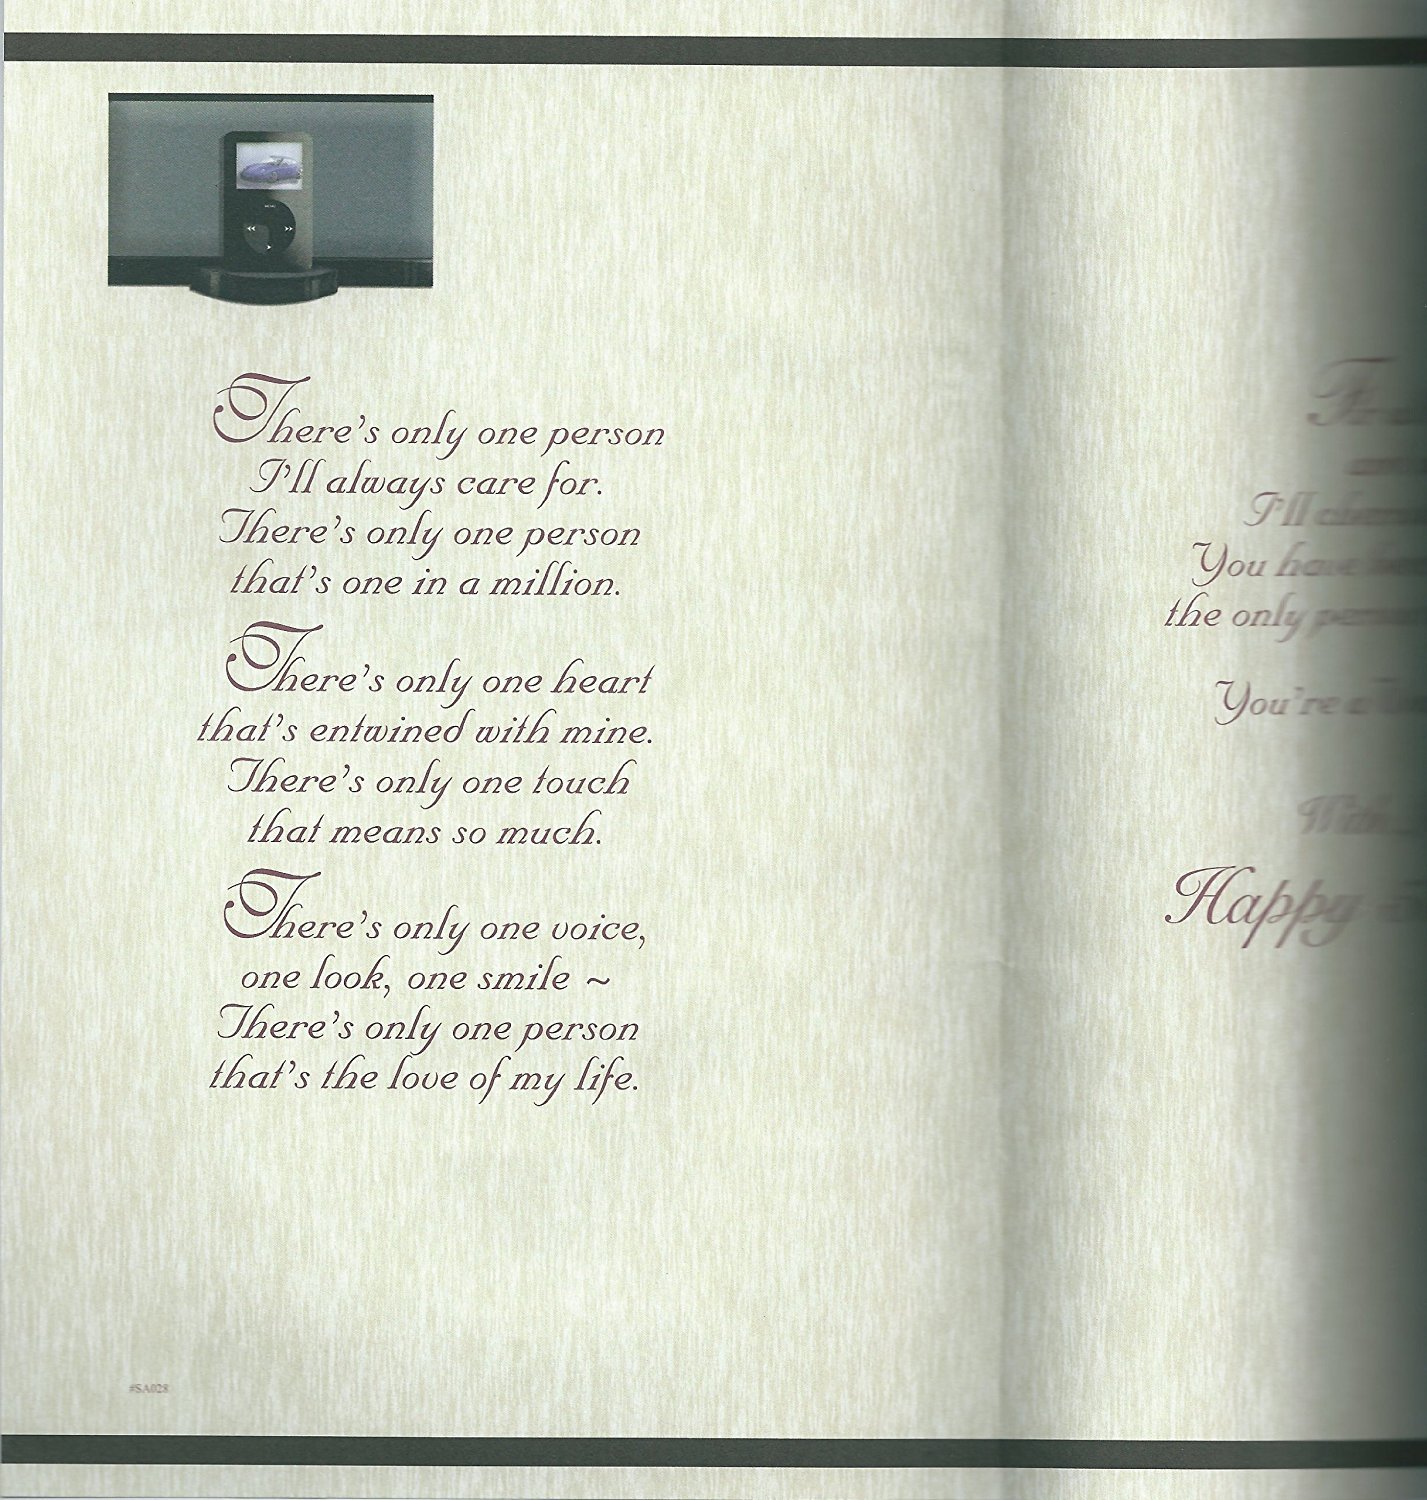 MENU
There's only one person
I'll always care for.
There's only one person
that's one in a million.
There's only one heart
that's entwined with mine.
There's only one touch
that means so much.
There's only one voice,
one look, one smile ~
There's only one person
that's the love of my life.
#SA028
I'll
You have
the only person
You're a
With
Happy